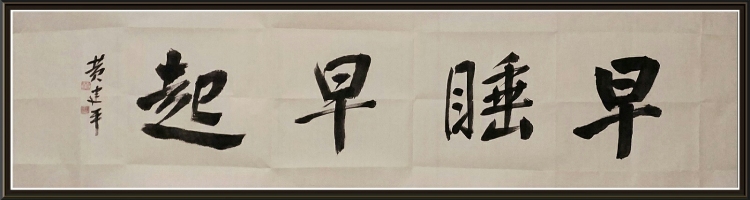 早睡早起
黄建平